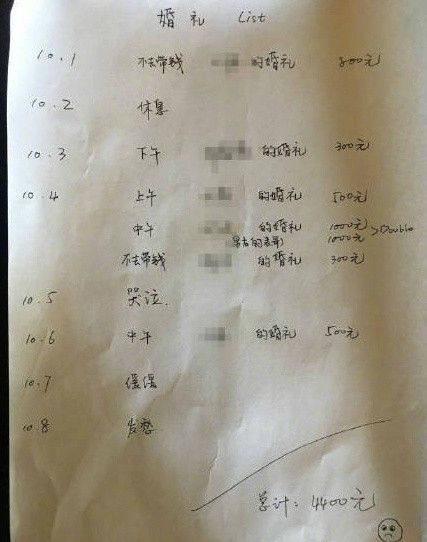 婚礼 List
10.1 不去带钱 的婚礼 800元
10.2 休息
10.3 下午 的婚礼 300元
10.4 上午 的婚礼 500元
中午 的婚礼 1000元
1000元 >Double
不去带钱 的婚礼 300元
10.5 哭泣.
10.6 中午 的婚礼 500元
10.7
10.8 发愁
总计: 4400元